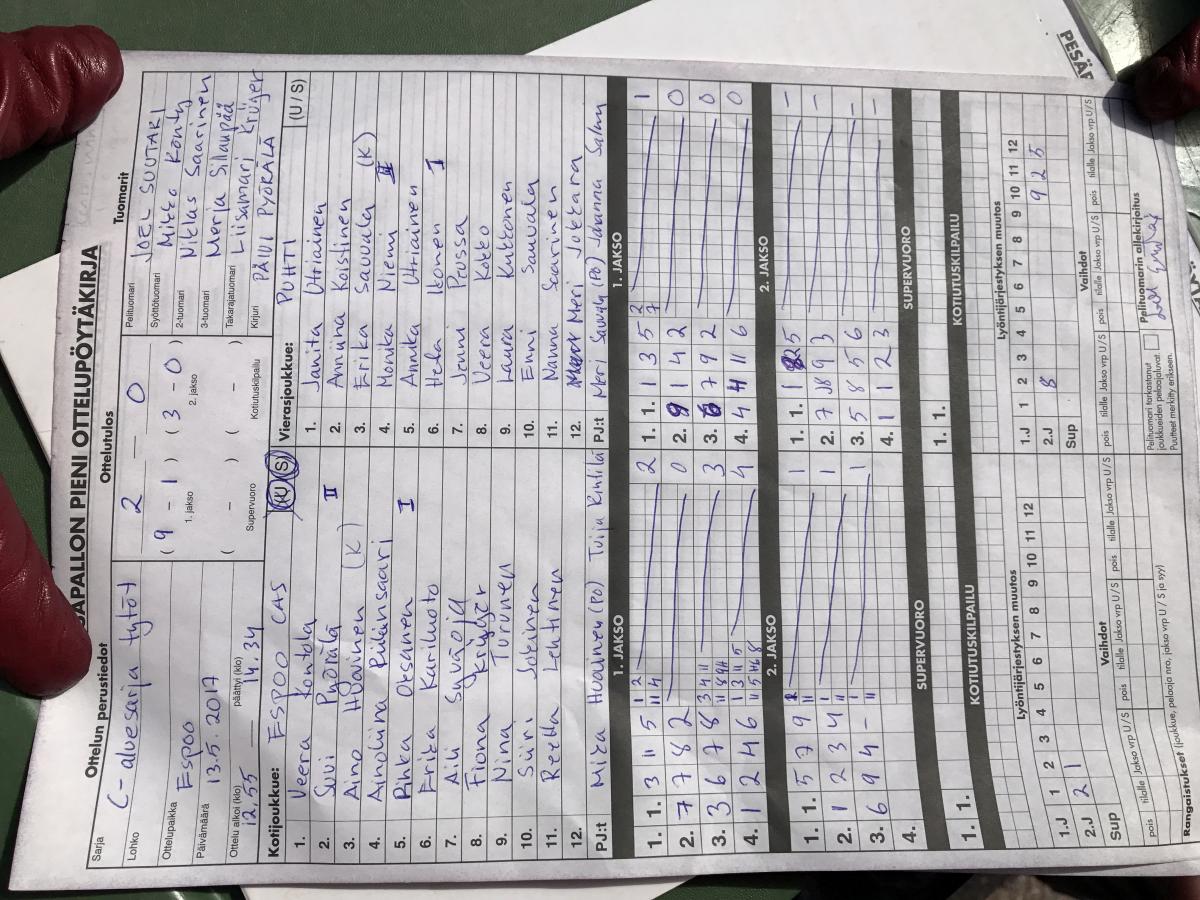 PESÄPALLON PIENI OTTELUPÖYTÄKIRJA
Ottelun perustiedot
Ottelutulos
Tuomarit
Sarja C-aluesarja tytöt
Lohko
Ottelupaikka Espoo
Päivämäärä 13.5.2017
Ottelu alkoi (klo) 12.55 päättyi (klo) 14.34
2 – 0
( 9 – 1 ) ( 3 – 0 )
1. jakso 2. jakso
( – ) ( – )
Supervuoro Kotiutuskilpailu
Pelituomari JOEL SUUTARI
Syöttötuomari Mikko Konty
2-tuomari Niklas Saarinen
3-tuomari Merja Sillanpää
Takarajatuomari Liisamari Krüger
Kirjuri PÄIVI PYÖRÄLÄ
Kotijoukkue: ESPOO CAS (U / S)
1. Veera Kontola
2. Suvi Pyörälä II
3. Aino Huovinen (K)
4. Anoliina Riihinsaari
5. Pinka Oksanen I
6. Erika Kariluoto
7. Aili Suvioja
8. Fiona Krüger
9. Nina Turunen
10. Siiri Jokinen
11. Reetta Lehtinen
12.
PJ:t Mika Huovinen (PO) Tuija Rintilä
Vierasjoukkue: PUHTI (U / S)
1. Janita Utriainen
2. Anniina Koistinen
3. Erika Sauvala (K)
4. Monika Niemi II
5. Annika Utriainen
6. Hela Ikonen I
7. Jenni Prussa
8. Veera Kokko
9. Laura Kukkonen
10. Enni Sauvala
11. Nanna Saarinen
12. Meri Jokara
PJ:t Meri Sauvala (PO) Johanna Salmu
1. JAKSO
1. 1. 3 11 5 2
2. 7 7 8 2 0
3. 3 6 7 8 3
4. 1 2 4 6 4
2. JAKSO
1. 1. 5 7 9 1
2. 1 2 3 4 1
3. 6 9 4 – 1
4.
SUPERVUORO
1. 1.
KOTIUTUSKILPAILU
1. JAKSO
1. 1. 1 3 5 1
2. 9 1 4 2 0
3. 6 7 9 2 0
4. 4 4 11 6 0
2. JAKSO
1. 1. 1 5 –
2. 7 8 9 3 –
3. 5 8 5 6 –
4. 1 1 2 3 –
SUPERVUORO
1. 1.
KOTIUTUSKILPAILU
Lyöntijärjestyksen muutos
1 2 3 4 5 6 7 8 9 10 11 12
1.J
2.J 2 1
Sup
Vaihdot
pois tilalle Jakso vrp U/S pois tilalle Jakso vrp U/S pois tilalle Jakso vrp U/S
Lyöntijärjestyksen muutos
1 2 3 4 5 6 7 8 9 10 11 12
1.J
2.J 8 9 2 5
Sup
Vaihdot
pois tilalle Jakso vrp U/S pois tilalle Jakso vrp U/S pois tilalle Jakso vrp U/S
Rangaistukset (joukkue, pelaaja nro, jakso vrp U / S ja syy)
Pelituomari tarkastanut
joukkueiden pelaajaluvat.
Puutteet merkitty erikseen.
Pelituomarin allekirjoitus